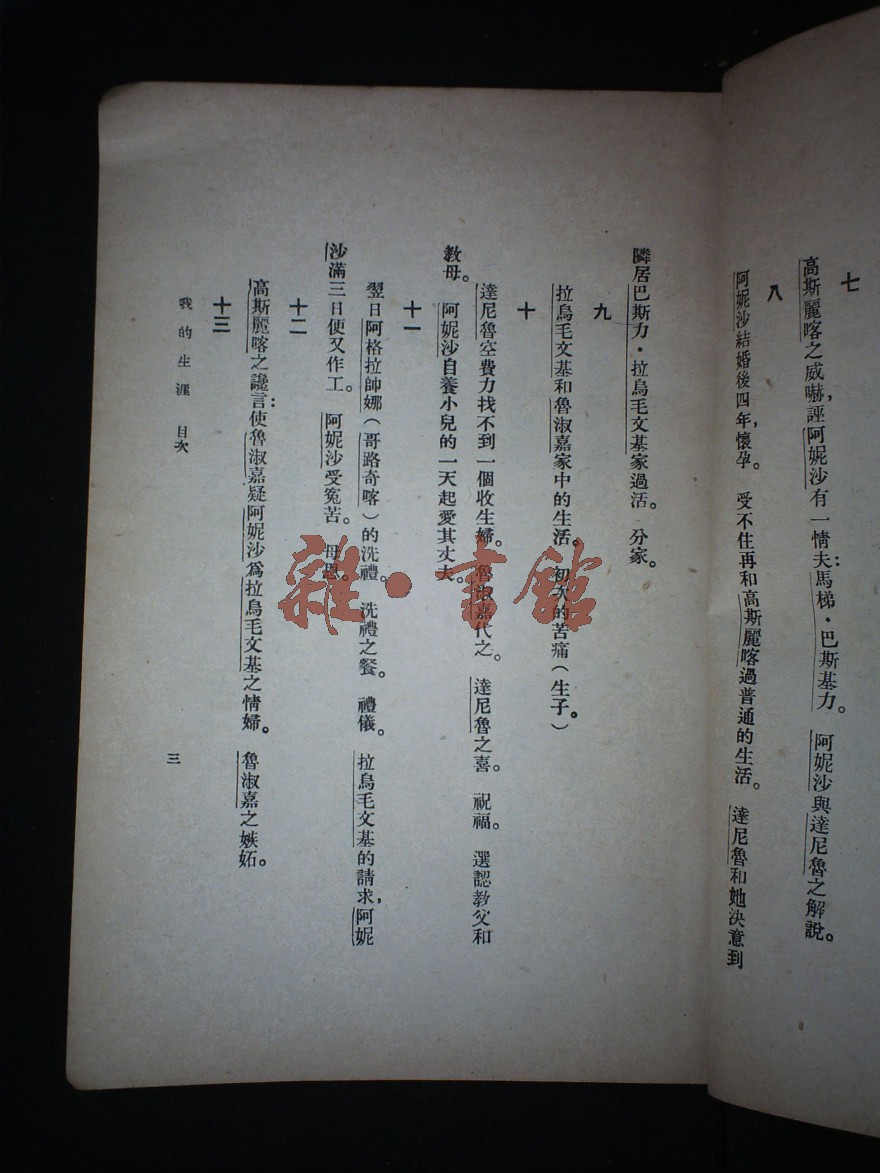 七
高斯麗喀之威嚇,誣阿妮沙有一情夫:馬梯·巴斯基力。 阿妮沙與達尼魯之解說。
八
阿妮沙結婚後四年,懷孕。 受不住再和高斯麗喀過普通的生活。 達尼魯和她決意到
隣居巴斯力·拉烏毛文基家過活。 分家。
九
拉烏毛文基和魯淑嘉家中的生活。 初次的苦痛(生子。)
十
達尼魯空費力找不到一個收生婦。 魯淑嘉代之。 達尼魯之喜。 祝福。 選認教父和
教母。 阿妮沙自養小兒的一天起愛其丈夫。
十一
翌日阿格拉帥娜(哥路奇喀)的洗禮。 洗禮之餐。 禮儀。 拉烏毛文基的請求,阿妮
沙滿三日便又作工。 阿妮沙受冤苦。 母恩。
十二
高斯麗喀之讒言:使魯淑嘉疑阿妮沙爲拉烏毛文基之情婦。 魯淑嘉之嫉妬。
十三
我的生涯 目次
三
雜·書館